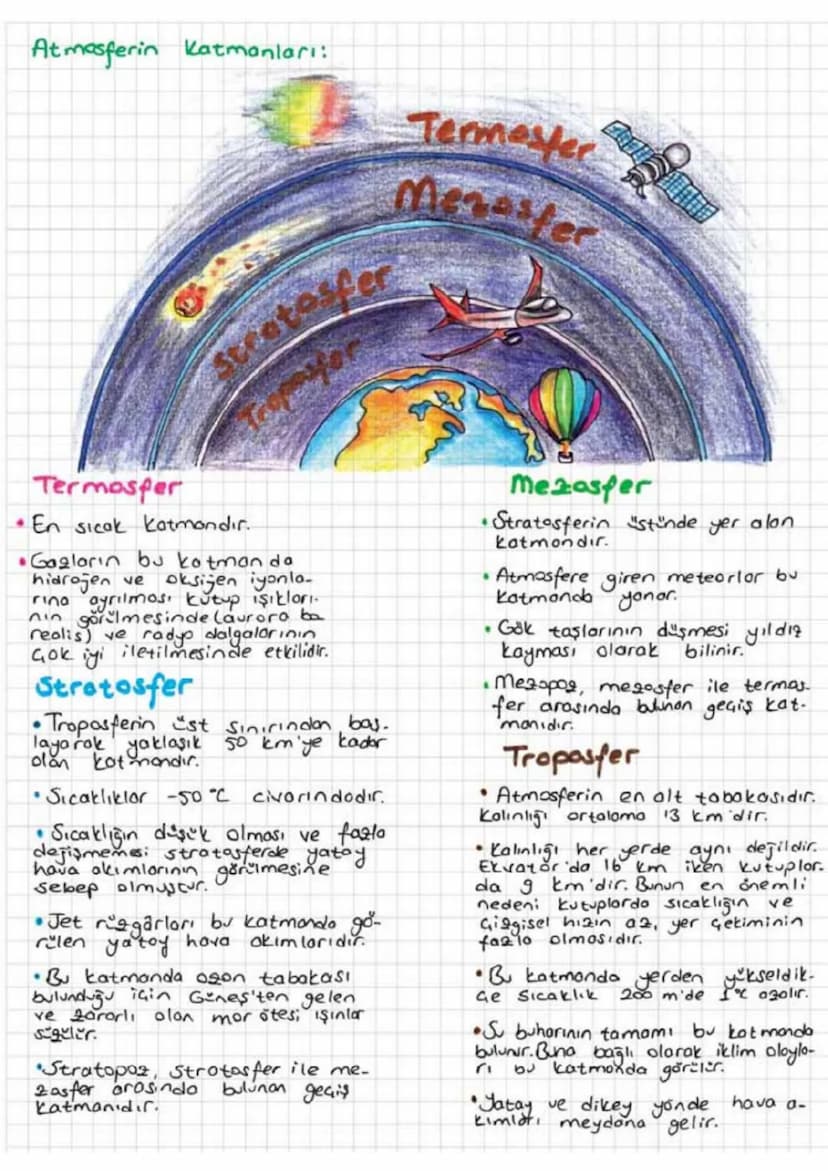 Atmosferin Katmanları:
Termosfer
Mezosfer
Stratosfer
Troposfer
Termosfer
• En sıcak katmandır.
• Gazların bu katmanda
hidrojen ve oksijen iyonla-
rına ayrılması kutup ışıkları-
nın görülmesinde (aurora bo
realis) ve radyo dalgalarının
çok iyi iletilmesinde etkilidir.
Stratosfer
• Troposferin üst sınırından baş-
layarak yaklaşık 50 km'ye kadar
olan katmandır.
• Sıcaklıklar -50 °C civarındadır.
• Sıcaklığın düşük olması ve fazla
değişmemesi stratosferde yatay
hava akımlarının görülmesine
sebep olmuştur.
• Jet rüzgârları bu katmanda gö-
rülen yatay hava akımlarıdır.
• Bu katmanda ozon tabakası
bulunduğu için Güneş'ten gelen
ve zararlı olan mor ötesi ışınlar
süzülür.
• Stratopoz, stratosfer ile me-
zosfer arasında bulunan geçiş
katmanıdır.
Mezosfer
• Stratosferin üstünde yer alan
katmandır.
• Atmosfere giren meteorlar bu
katmanda yanar.
• Gök taşlarının düşmesi yıldız
kayması olarak bilinir.
• Mezopoz, mezosfer ile termos-
fer arasında bulunan geçiş kat-
manıdır.
Troposfer
• Atmosferin en alt tabakasıdır.
Kalınlığı ortalama 13 km'dir.
• Kalınlığı her yerde aynı değildir.
Ekvator'da 16 km iken kutuplar-
da 9 km'dir. Bunun en önemli
nedeni kutuplarda sıcaklığın ve
çizgisel hızın az, yer çekiminin
fazla olmasıdır.
• Bu katmanda yerden yükseldik-
çe sıcaklık 200 m'de 1°C azalır.
• Su buharının tamamı bu katmanda
bulunur. Buna bağlı olarak iklim olayla-
rı bu katmanda görülür.
• Yatay ve dikey yönde hava a-
kımları meydana gelir.